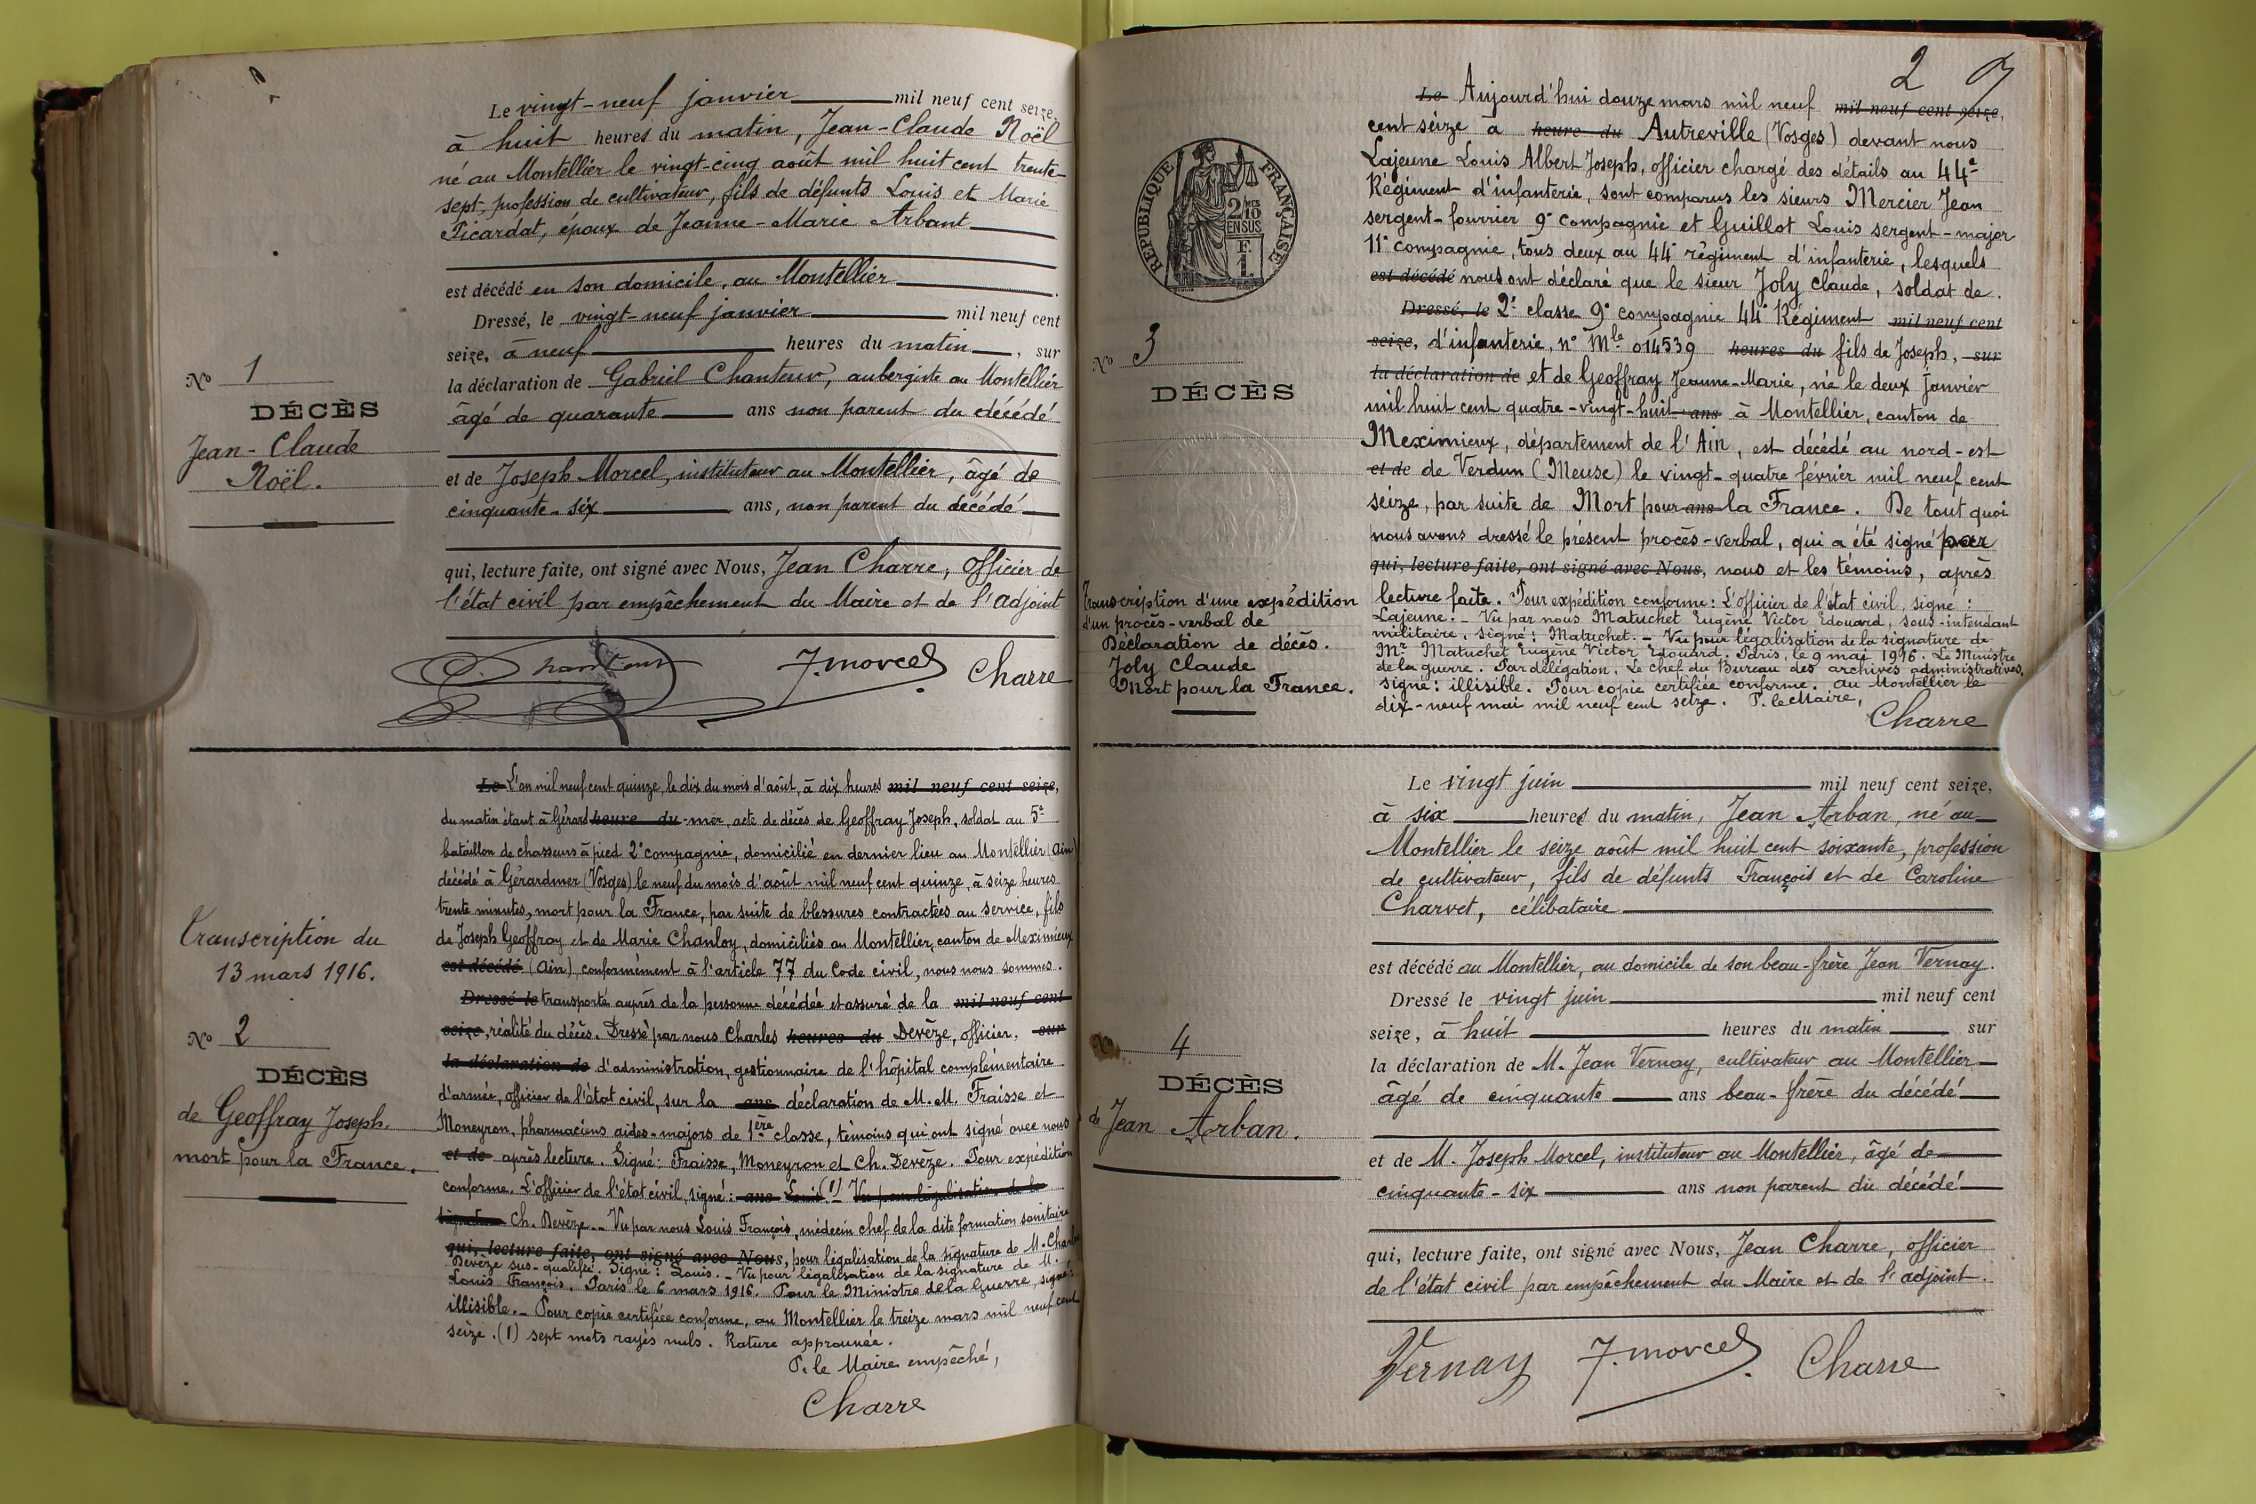 Le vingt-neuf janvier mil neuf cent seize,
à huit heures du matin, Jean-Claude Noël
né au Montellier le vingt-cinq août mil huit cent trente-
sept, profession de cultivateur, fils de défunts Louis et Marie
Picardat, époux de Jeanne-Marie Arbant
est décédé en son domicile, au Montellier.
Dressé, le vingt-neuf janvier mil neuf cent
seize, à neuf heures du matin, sur
la déclaration de Gabriel Chanteur, aubergiste au Montellier
âgé de quarante ans non parent du décédé
et de Joseph Morcel, instituteur au Montellier, âgé de
cinquante-six ans, non parent du décédé
qui, lecture faite, ont signé avec Nous, Jean Charre, officier de
l'état civil par empêchement du Maire et de l'adjoint
Chanteur J. Morcel Charre
No 1
DÉCÈS
Jean-Claude
Noël.
Le L'an mil neuf cent quinze, le dix du mois d'août, à dix heures mil neuf cent seize,
du matin étant à Gérard heure du -mer, acte de décès de Geoffray Joseph, soldat au 5e
bataillon de chasseurs à pied 2e compagnie, domicilié en dernier lieu au Montellier (Ain)
décédé à Gérardmer (Vosges) le neuf du mois d'août mil neuf cent quinze, à seize heures
trente minutes, mort pour la France, par suite de blessures contractées au service, fils
de Joseph Geoffray et de Marie Chanloy, domiciliés au Montellier, canton de Meximieux
est décédé (Ain) conformément à l'article 77 du Code civil, nous nous sommes.
Dressé le transporté auprès de la personne décédée et assuré de la mil neuf cent
seize, réalité du décès. Dressé par nous Charles heures du Devèze, officier. sur
la déclaration de d'administration, gestionnaire de l'hôpital complémentaire
d'armée, officier de l'état civil, sur la ans déclaration de M.M. Fraisse et
Moneyron, pharmaciens aides-majors de 1ère classe, témoins qui ont signé avec nous
et de après lecture. Signé: Fraisse, Moneyron et Ch. Devèze. Pour expédition
conforme. L'officier de l'état civil, signé: ans Louis (1) Vu pour légalisation de la
Ch. Devèze. - Vu par nous Louis François, médecin chef de la dite formation sanitaire
qui, lecture faite, ont signé avec Nous, pour légalisation de la signature de M. Charles
Devèze sus-qualifié. Signé: Louis. - Vu pour légalisation de la signature de M.
Louis François. Paris le 6 mars 1916. Pour le Ministre de la Guerre, signé:
illisible. - Pour copie certifiée conforme, au Montellier le treize mars mil neuf cent
seize. (1) sept mots rayés nuls. Rature approuvée.
P. le Maire empêché,
Charre
Transcription du
13 mars 1916.
No 2
DÉCÈS
de Geoffray Joseph.
mort pour la France.
2
Le Aujourd'hui douze mars mil neuf mil neuf cent seize,
cent seize à heure du Autreville (Vosges) devant nous
Lajeune Louis Albert Joseph, officier chargé des détails au 44e
Régiment d'infanterie, sont comparus les sieurs Mercier Jean
sergent-fourrier 9e compagnie et Guillot Louis sergent-major
11e compagnie, tous deux au 44e régiment d'infanterie, lesquels
est décédé nous ont déclaré que le sieur Joly Claude, soldat de.
Dressé, le 2e classe 9e compagnie 44e Régiment mil neuf cent
seize, d'infanterie, n° Mle 014539 heures du fils de Joseph, sur
la déclaration de et de Geoffray Jeanne-Marie, né le deux janvier
mil huit cent quatre-vingt-huit ans à Montellier, canton de
Meximieux, département de l'Ain, est décédé au nord-est
et de de Verdun (Meuse) le vingt-quatre février mil neuf cent
seize, par suite de Mort pour ans la France. De tout quoi
nous avons dressé le présent procès-verbal, qui a été signé par
qui, lecture faite, ont signé avec Nous, nous et les témoins, après
lecture faite. Pour expédition conforme: L'officier de l'état civil, signé:
Lajeune. - Vu par nous Matuchet Eugène Victor Edouard, sous-intendant
militaire, signé: Matuchet. - Vu pour légalisation de la signature de
Mr Matuchet Eugène Victor Edouard. Paris, le 9 mai 1916. Le Ministre
de la guerre. Par délégation. Le chef du Bureau des archives administratives,
signé: illisible. Pour copie certifiée conforme. au Montellier le
dix-neuf mai mil neuf cent seize. P. le Maire,
Charre
RÉPUBLIQUE FRANÇAISE
2/10
EN SUS
F.
1
No 3
DÉCÈS
Transcription d'une expédition
d'un procès-verbal de
Déclaration de décès.
Joly Claude
Mort pour la France.
Le vingt juin mil neuf cent seize,
à six heures du matin, Jean Arban, né au
Montellier le seize août mil huit cent soixante, profession
de cultivateur, fils de défunts François et de Caroline
Charvet, célibataire
est décédé au Montellier, au domicile de son beau-frère Jean Vernay.
Dressé le vingt juin mil neuf cent
seize, à huit heures du matin sur
la déclaration de M. Jean Vernay, cultivateur au Montellier
âgé de cinquante ans beau-frère du décédé
et de M. Joseph Morcel, instituteur au Montellier, âgé de
cinquante-six ans non parent du décédé
qui, lecture faite, ont signé avec Nous, Jean Charre, officier
de l'état civil par empêchement du Maire et de l'adjoint.
Vernay J. Morcel Charre
No 4
DÉCÈS
de Jean Arban.